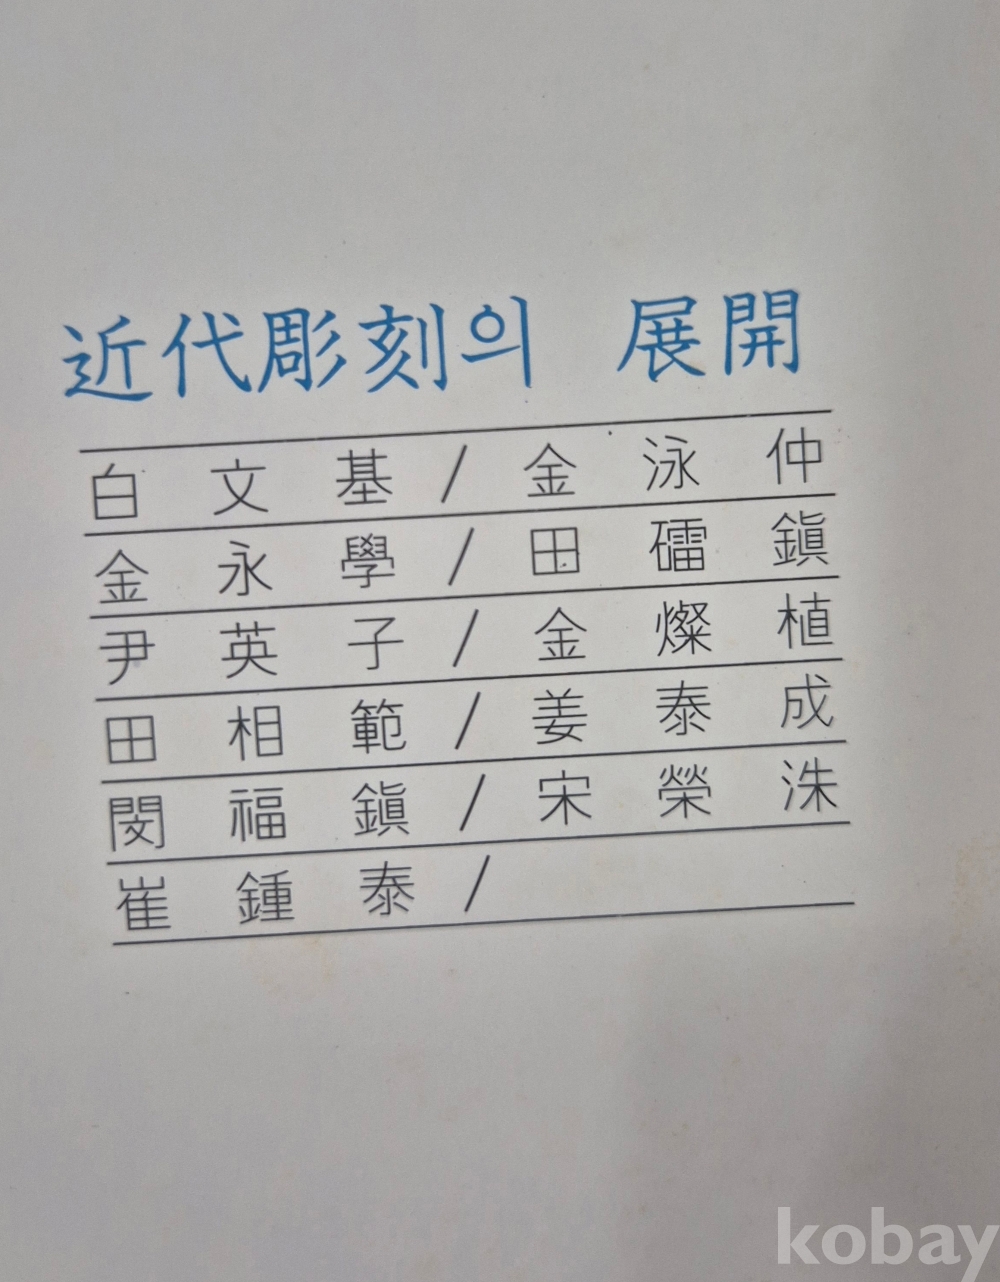 近代彫刻의 展開
白文基 / 金泳仲
金永學 / 田礌鎭
尹英子 / 金燦植
田相範 / 姜泰成
閔福鎭 / 宋榮洙
崔鍾泰 /
kobay